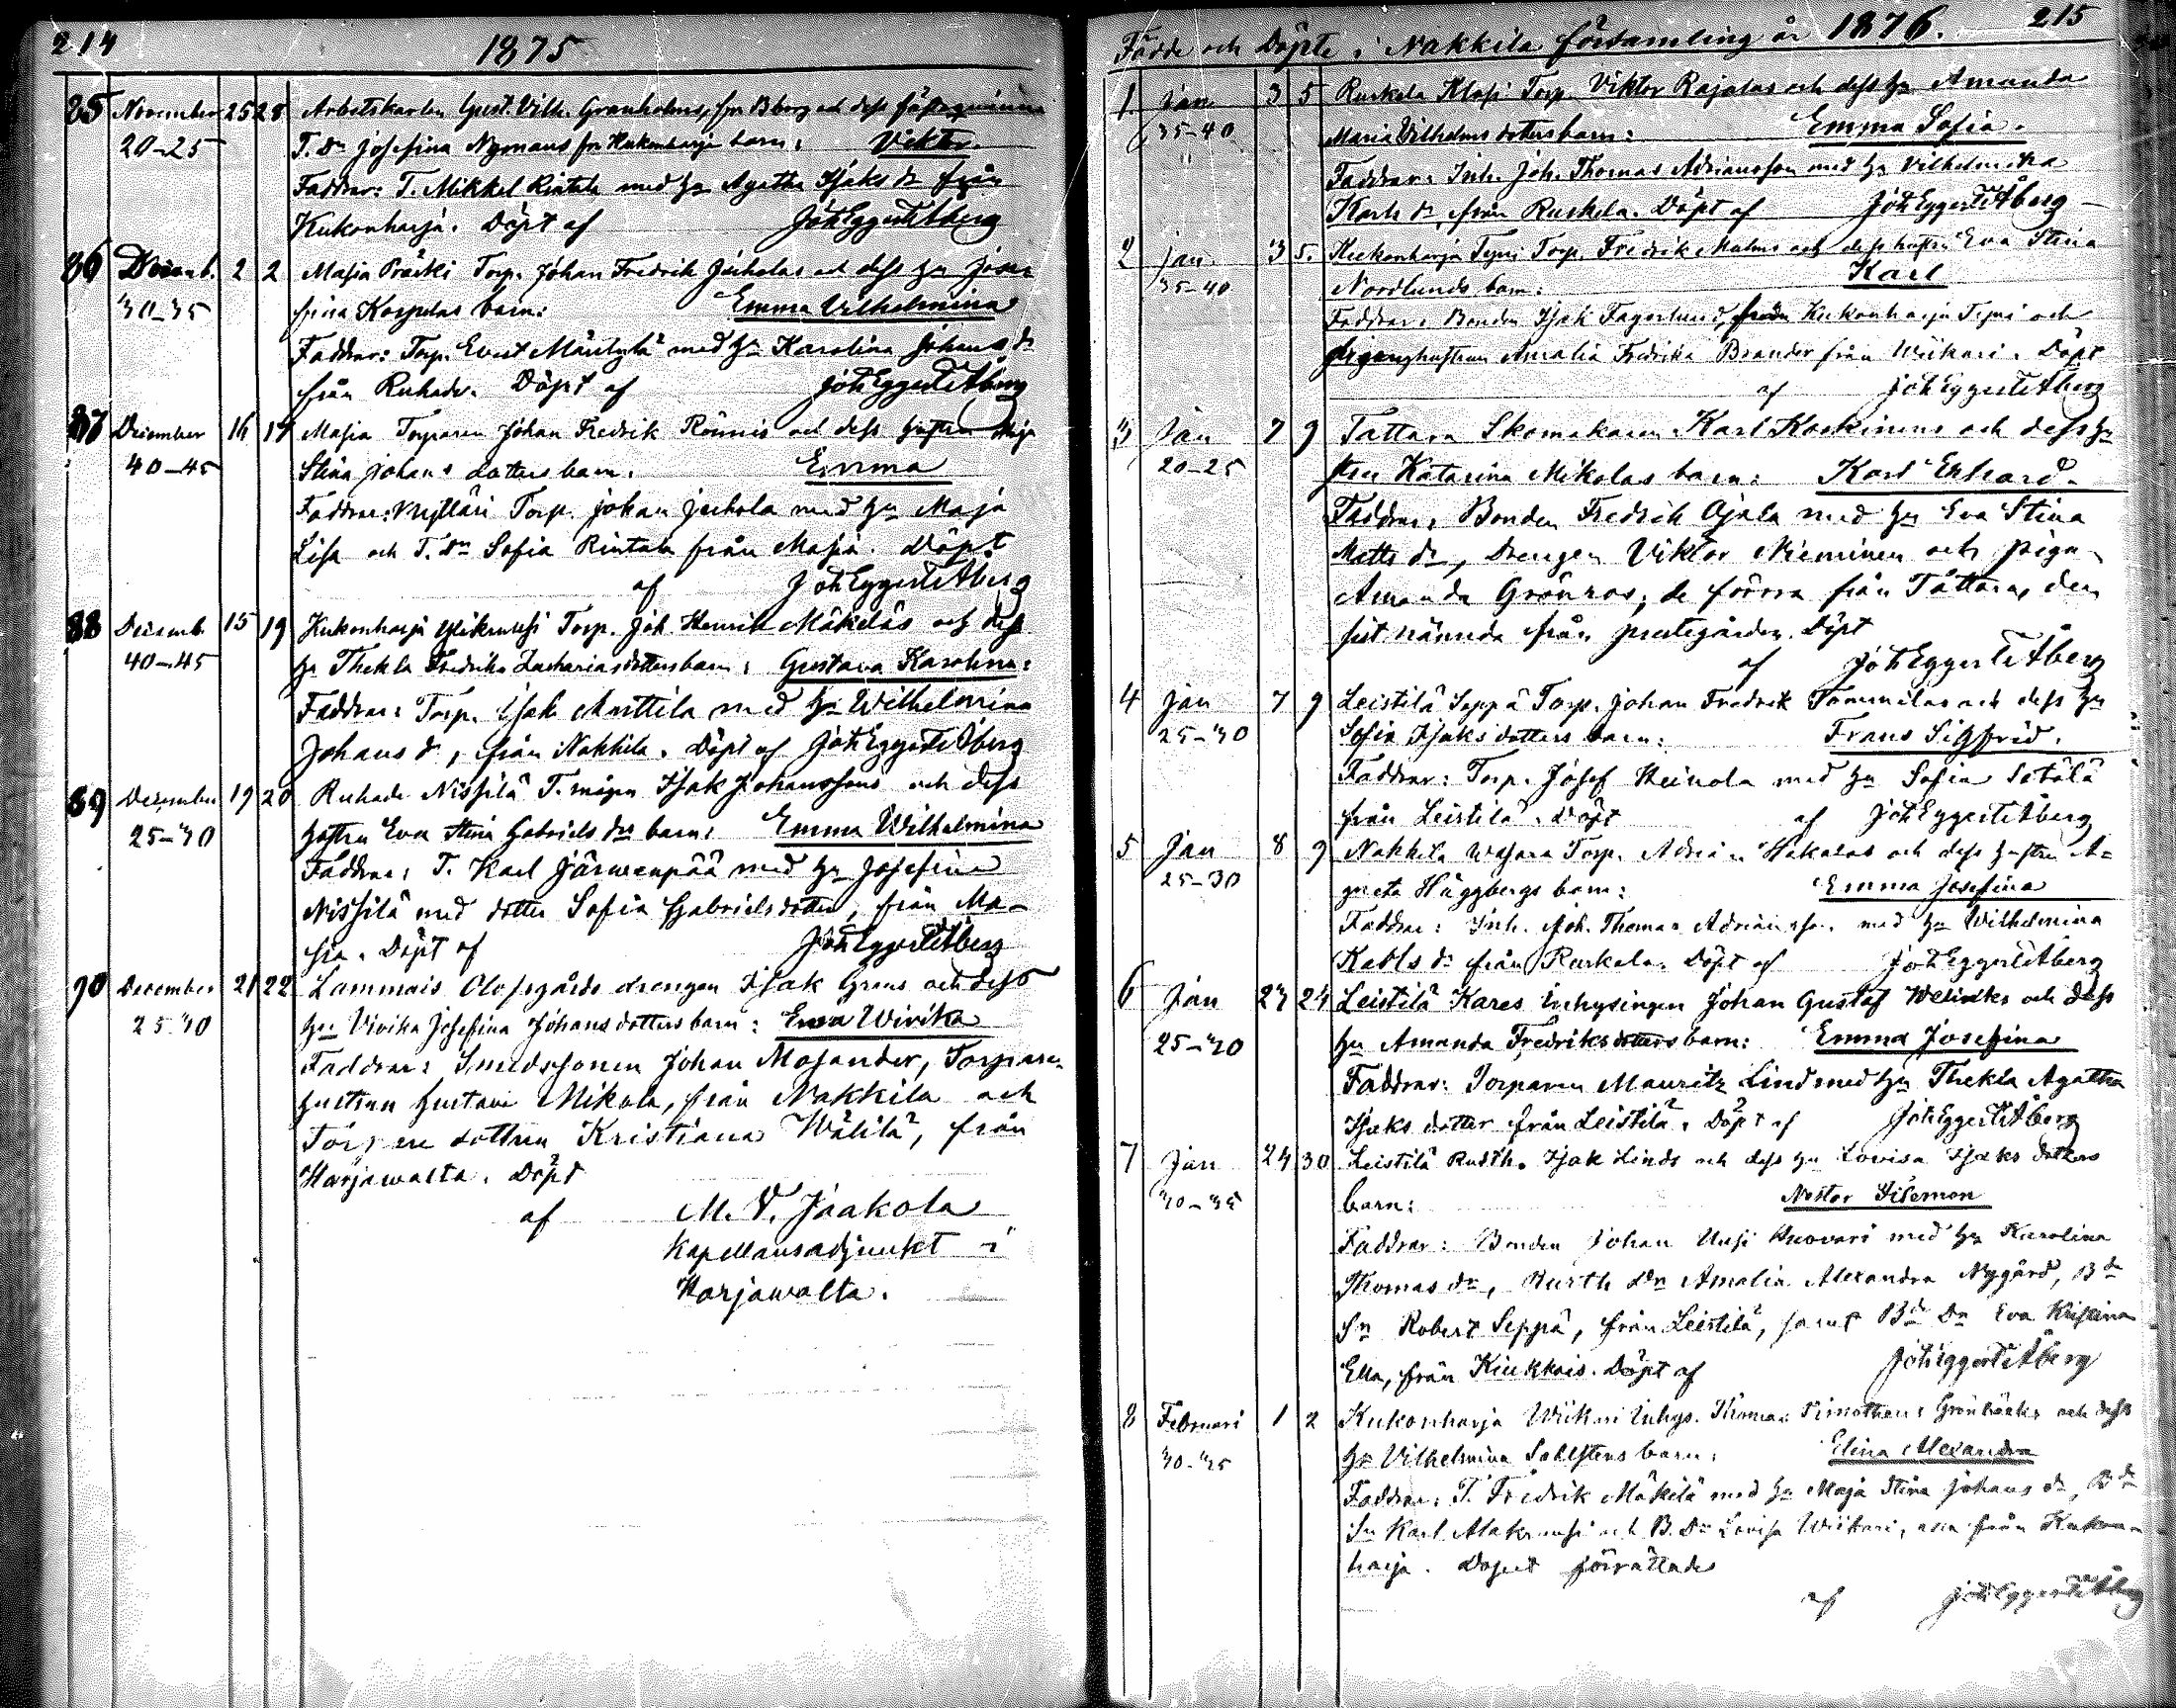 214
1875
85 November 25 28 Arbetskarlen Gust. Vilh. Granholms, fr Bborg och dess
20-25 T. dr Josefina Nymans fr Kukonharja barn: Viktor.
Faddrar: T. Mikkel Rintala med hu Agatha Isaks dr från
Kukonharja. Döpt af Joh Eggert Åberg
86 2 2 Masia Präski Torp. Johan Fredrik Juholas och dess hu Jose
30-35 fina Korpelas barn: Emma Vilhelmina
Faddrar: Torp. Evert Mäntylä med hu Karolina Johans dr
från Ruhade. Döpt af Joh Eggert Åberg
87 December 16 19 Masia Torparen Johan Fredrik Rönnis och dess hustru Maja
40-45 Stina Johans dotters barn. Emma
Faddrar: Torp. Johan Juhola med hu Maja
Lisa och T. dn Sofia Rintala från Masia. Döpt
af Joh Eggert Åberg
88 Decemb. 15 19 Kukonharja Ylikrausi Torp. Joh. Henrik Mäkeläs och dess
40-45 hu Thekla Fredrika Zacharias dotters barn: Gustava Karolina:
Faddrar: Torp. Isak Anttila med hu Wilhelmina
Johans dr, från Nakkila. Döpt af Joh Eggert Åberg
89 December 19 20 Ruhade Nissilä T. mågen Isak Johanssons och dess
25-30 hustru Eva Stina Gabriels drs barn: Emma Wilhelmina
Faddrar: T. Karl Järwenpää med hu Josefina
Nissilä med dotter Sofia Gabrielsdotter, från Ma-
sia. Döpt af Joh Eggert Åberg
90 December 21 22 Lammais Olofsgårds drengen Isak Grens och dess
25-30 hu Vivika Josefina Johans dotters barn: Eva Wivika
Faddrar: Smedssonen Johan Mosander, Torpare
hustrun Gustava Mikola, från Nakkila och
Torpare dottren Kristiana Wälilä, från
Harjawalta. Döpt
af M. V. Jaakola
Kapellansadjunkt i
Harjawalta.
215
Födde och Döpte i Nakkila församling år 1876.
1 Jan 3 5 Ruskela Klasi Torp. Viktor Rajalas och dess hu Amanda
35-40 Maria Wilhelms dotters barn: Emma Sofia.
Faddrar: Inh. Joh. Thomas Adriansson med hu Vilhelmina
Karls dr från Ruskela. Döpt af Joh Eggert Åberg
2 Jan 3 5. Kukonharja Tyni Torp. Fredrik Malms och dess hustru Eva Stina
35-40 Nordlunds barn: Karl
Faddrar: Bonden Isak Fagerlund, från Kukonharja Tyni och
hustrun Amalia Fredrika Brander från Wiikari. Döpt
af Joh Eggert Åberg
3 Jan 7 9 Tattara Skomakaren Karl Koskinens och dess hu
20-25 stru Katarina Mikolas barn: Karl Erhard.
Faddrar: Bonden Fredrik Ojala med hu Eva Stina
Matts dr, Drengen Viktor Nieminen och pigan
Amanda Grönroos, de förra från Tattara, den
sist nämnda från prestegården. Döpt
af Joh Eggert Åberg
4 Jan 7 9 Leistilä Seppä Torp. Johan Fredrik Tommilas och dess hu
25-30 Sofia Isaks dotters barn: Frans Sigfrid.
Faddrar: Torp. Josef Heinola med hu Sofia Sotälä
från Leistilä. Döpt af Joh Eggert Åberg
5 Jan 8 9 Nakkila Wasara Torp. Adrian Hakalas och dess hustru A-
25-30 gneta Häggbergs barn: Emma Josefina
Faddrar: Inh. Joh. Thomas Adriansson med hu Wilhelmina
Karls dr från Ruskela. Döpt af Joh Eggert Åberg
6 Jan 23 24 Leistilä Kares Inhysingen Johan Gustaf och dess
25-30 hu Amanda Fredriksdotters barn: Emma Josefina
Faddrar: Torparen Mauritz Lind med hu Thekla Agatha
Isaks dotter från Leistilä. Döpt af Joh Eggert Åberg
7 Jan 24 30 Leistilä Rusth. Isak Linds och dess hu Lovisa Isaks dotters
30-35 barn: Nestor Filemon
Faddrar: Bonden Johan Uusi Knovari med hu Karolina
Thomas dr, Rusth dn Amalia Alexandra Nygård, Bde
Sn Robert Seppä, från Leistilä, samt Bde Dn Eva Kristina
Ella, från Kiukkais. Döpt af Joh Eggert Åberg
8 Februari 1 2 Kukonharja Wiikari Inhys. Thomas Timotheus Grönbäcks och dess
30-35 hu Vilhelmina Sahlstens barn: Elina Alexandra
Faddrar: T. Fredrik Mäkilä med hu Maja Stina Johans dr, Bde
Sn Karl Alakrausi och B. Dn Lovisa Wiikari, alla från Kukon-
harja. Dopet förrättade
af Joh Eggert Åberg